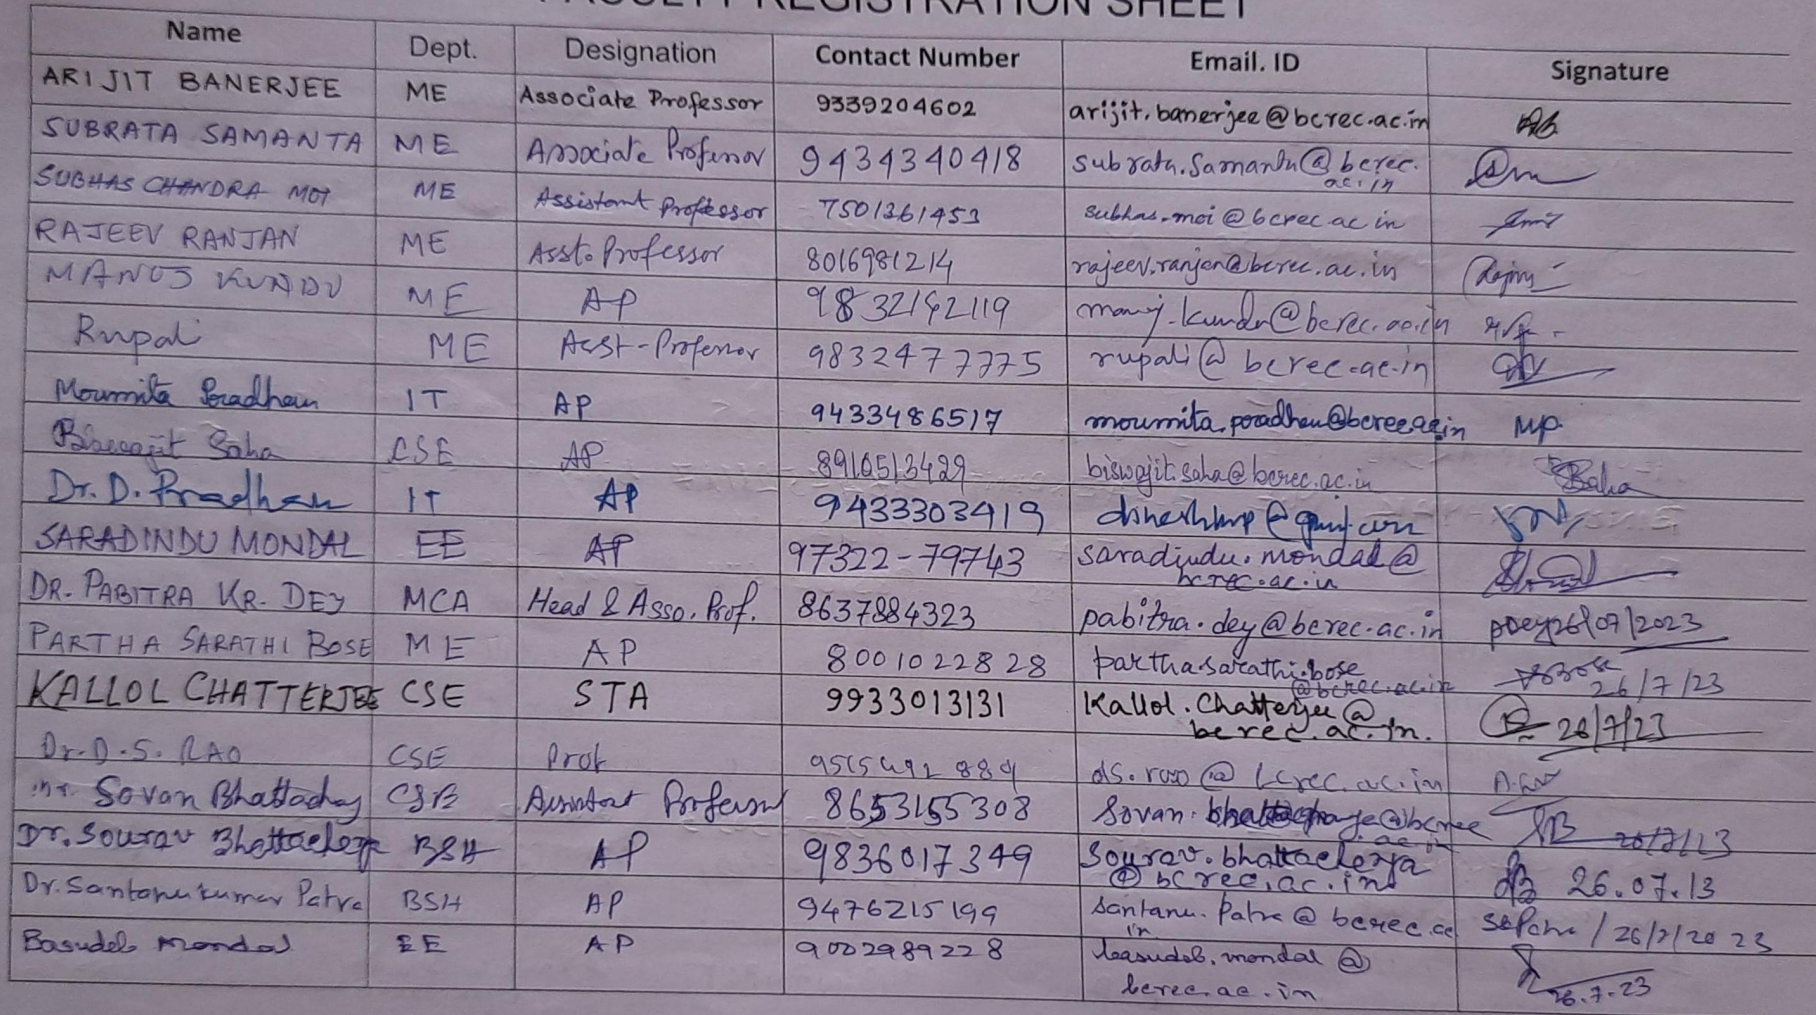 FACULTY REGISTRATION SHEET
Name Dept. Designation Contact Number Email. ID Signature
ARIJIT BANERJEE ME Associate Professor 9339204602 arijit.banerjee@bcrec.ac.in
SUBRATA SAMANTA ME Associate Professor 9434340418 subrata.samanta@bcrec.
ac.in
SUBHAS CHANDRA MOI ME Assistant Professor 7501361453 subhas.moi@bcrec.ac.in
RAJEEV RANJAN ME Asst. Professor 8016981214 rajeev.ranjan@bcrec.ac.in
MANOJ KUNDU ME AP manoj.kundu@bcrec.ac.in
Rupali ME Asst-Professor 9832477775 rupali@bcrec.ac.in
Moumita Pradhan IT AP 9433486517 moumita.pradhan@bcrec.ac.in MP
Biswajit Saha CSE AP biswajit.saha@bcrec.ac.in Saha
Dr. D. Pradhan IT AP 9433303419
SARADINDU MONDAL EE AP 97322-79743 saradindu.mondal@
bcrec.ac.in
DR. PABITRA KR. DEY MCA Head & Asso. Prof. 8637884323 pabitra.dey@bcrec.ac.in pdey26/07/2023
PARTHA SARATHI BOSE ME AP 8001022828 parthasarathi.bose
@bcrec.ac.in 26/7/23
KALLOL CHATTERJEE CSE STA 9933013131 Kallol.Chatterjee@
bcrec.ac.in. 26/7/23
Dr. D.S. RAO CSE Prof ds.rao@bcrec.ac.in
Sovan Bhattacharya CSE Assistant Professor 8653155308
Dr. Sourav Bhattacharya BSH AP 9836017349 Sourav.bhattacharya
@bcrec.ac.in 26.07.13
Dr. Santanu Kumar Patra BSH AP 9476215199 santanu.patra@bcrec.ac
in 26/7/2023
Basudeb Mondal EE AP 9002989228 basudeb.mondal@
bcrec.ac.in 26.7.23